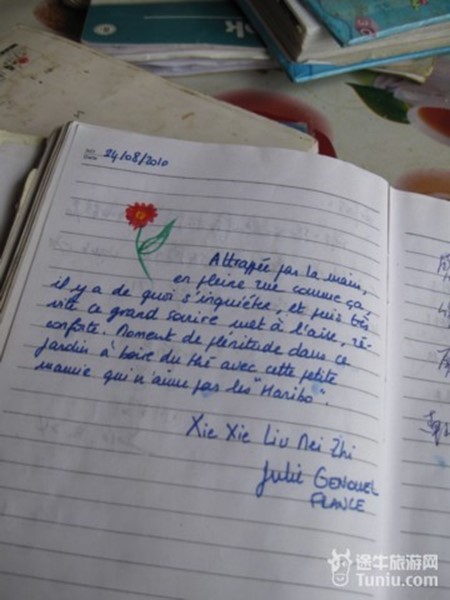 Date 24/08/2010
Attrappée par la main,
en pleine rue comme ça,
il y a de quoi s'inquiéter, et puis très
vite ce grand sourire met à l'aise, ré-
conforte. Moment de plénitude dans ce
jardin à boire du thé avec cette petite
mamie qui n'aime pas les "Haribo".
Xie Xie Liu Mei Zhi
Julie GENOUEL
FRANCE
途牛旅游网
Tuniu.com